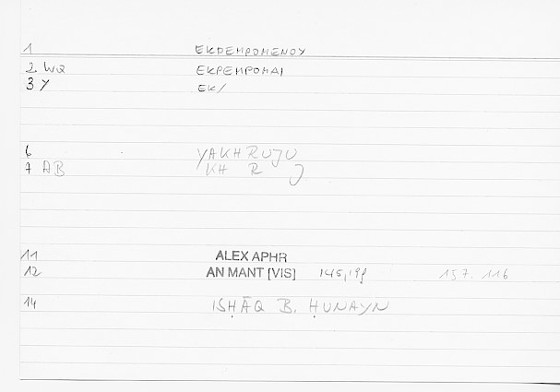 1 EKPEMPOMENOY
2 WQ EKPEMPOMAI
3 Y EK/
6 YAKHRUJU
7 AB KH R J
11 ALEX APHR
12 AN MANT [VIS] 145,19f 157.116
14 ISḤĀQ B. ḤUNAYN